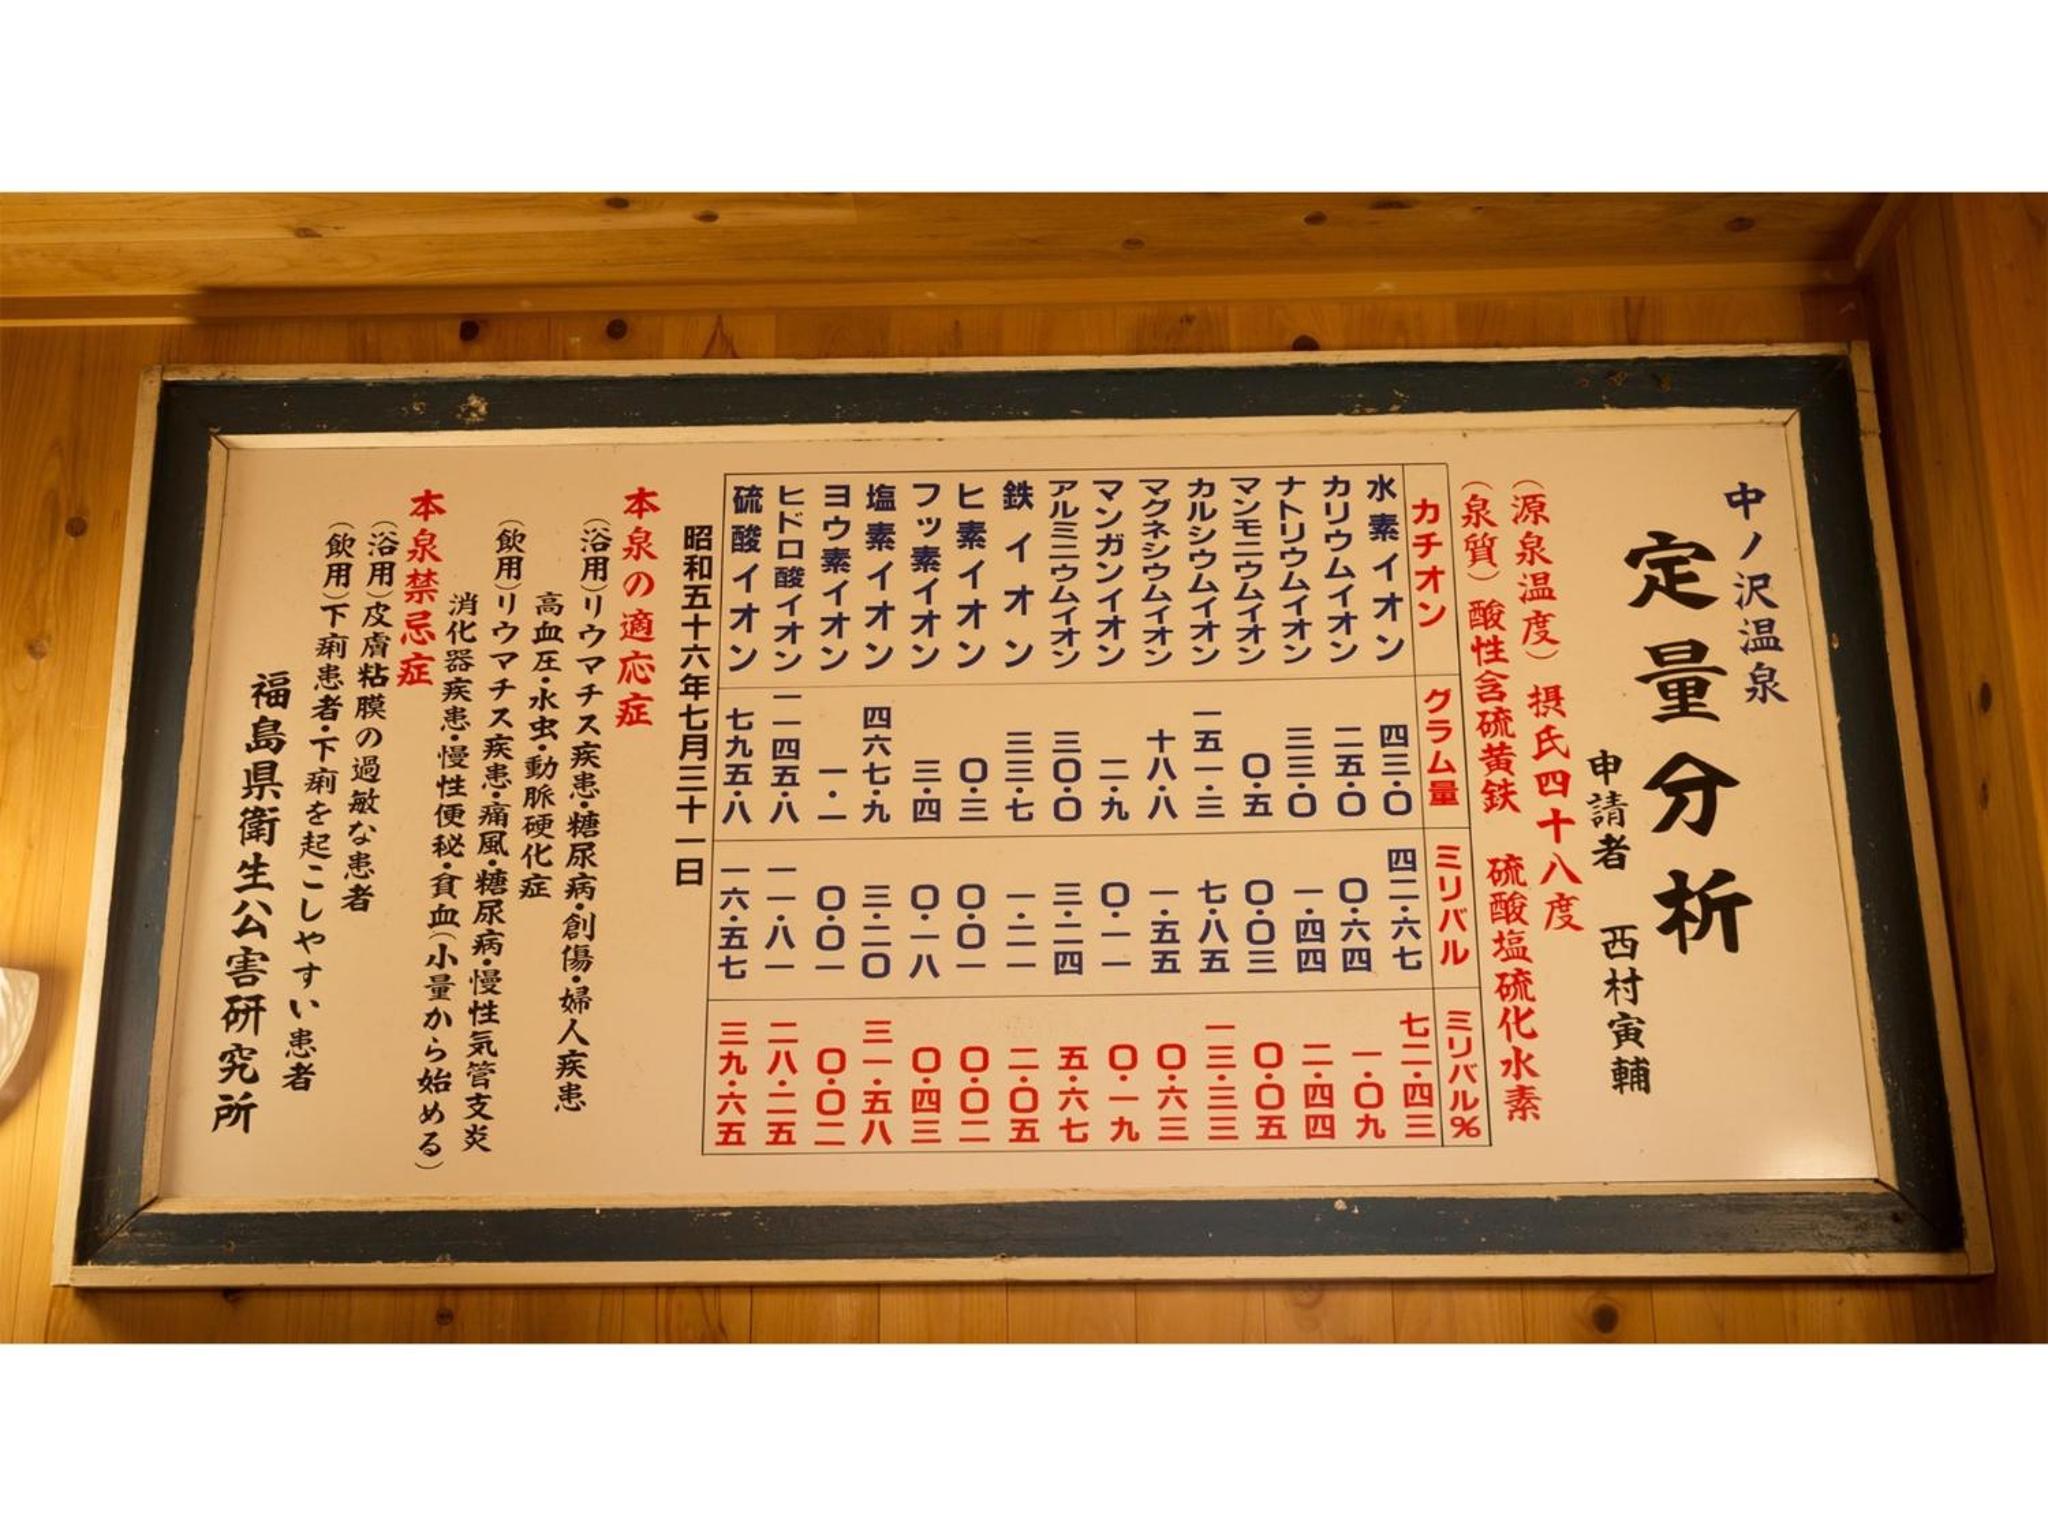 中ノ沢温泉
定量分析
申請者 西村寅輔
(源泉温度) 摂氏四十八度
(泉質) 酸性含硫黄鉄 硫酸塩硫化水素
カチオン グラム量 ミリバル ミリバル%
水素イオン 四三・〇 四二・六七 七二・四三
カリウムイオン 二五・〇 〇・六四 一・〇九
ナトリウムイオン 三三・〇 一・四四 二・四四
マンモニウムイオン 〇・五 〇・〇三 〇・〇五
カルシウムイオン 一五一・三 七・八五 一三・三三
マグネシウムイオン 十八・八 一・五五 〇・六三
マンガンイオン 二・九 〇・一一 〇・一九
アルミニウムイオン 三〇・〇 三・二四 五・六七
鉄イオン 三三・七 一・二一 二・〇五
ヒ素イオン 〇・三 〇・〇一 〇・〇二
フッ素イオン 三・四 〇・一八 〇・四三
塩素イオン 四六七・九 三・二〇 三一・五八
ヨウ素イオン 一・二 〇・〇一 〇・〇二
ヒドロ酸イオン 一一四五・八 一一・八一 二八・二五
硫酸イオン 七九五・八 一六・五七 三九・六五
昭和五十六年七月三十一日
本泉の適応症
(浴用)リウマチス疾患・糖尿病・創傷・婦人疾患
高血圧・水虫・動脈硬化症
(飲用)リウマチス疾患・痛風・糖尿病・慢性気管支炎
消化器疾患・慢性便秘・貧血(小量から始める)
本泉禁忌症
(浴用)皮膚粘膜の過敏な患者
(飲用)下痢患者・下痢を起こしやすい患者
福島県衛生公害研究所